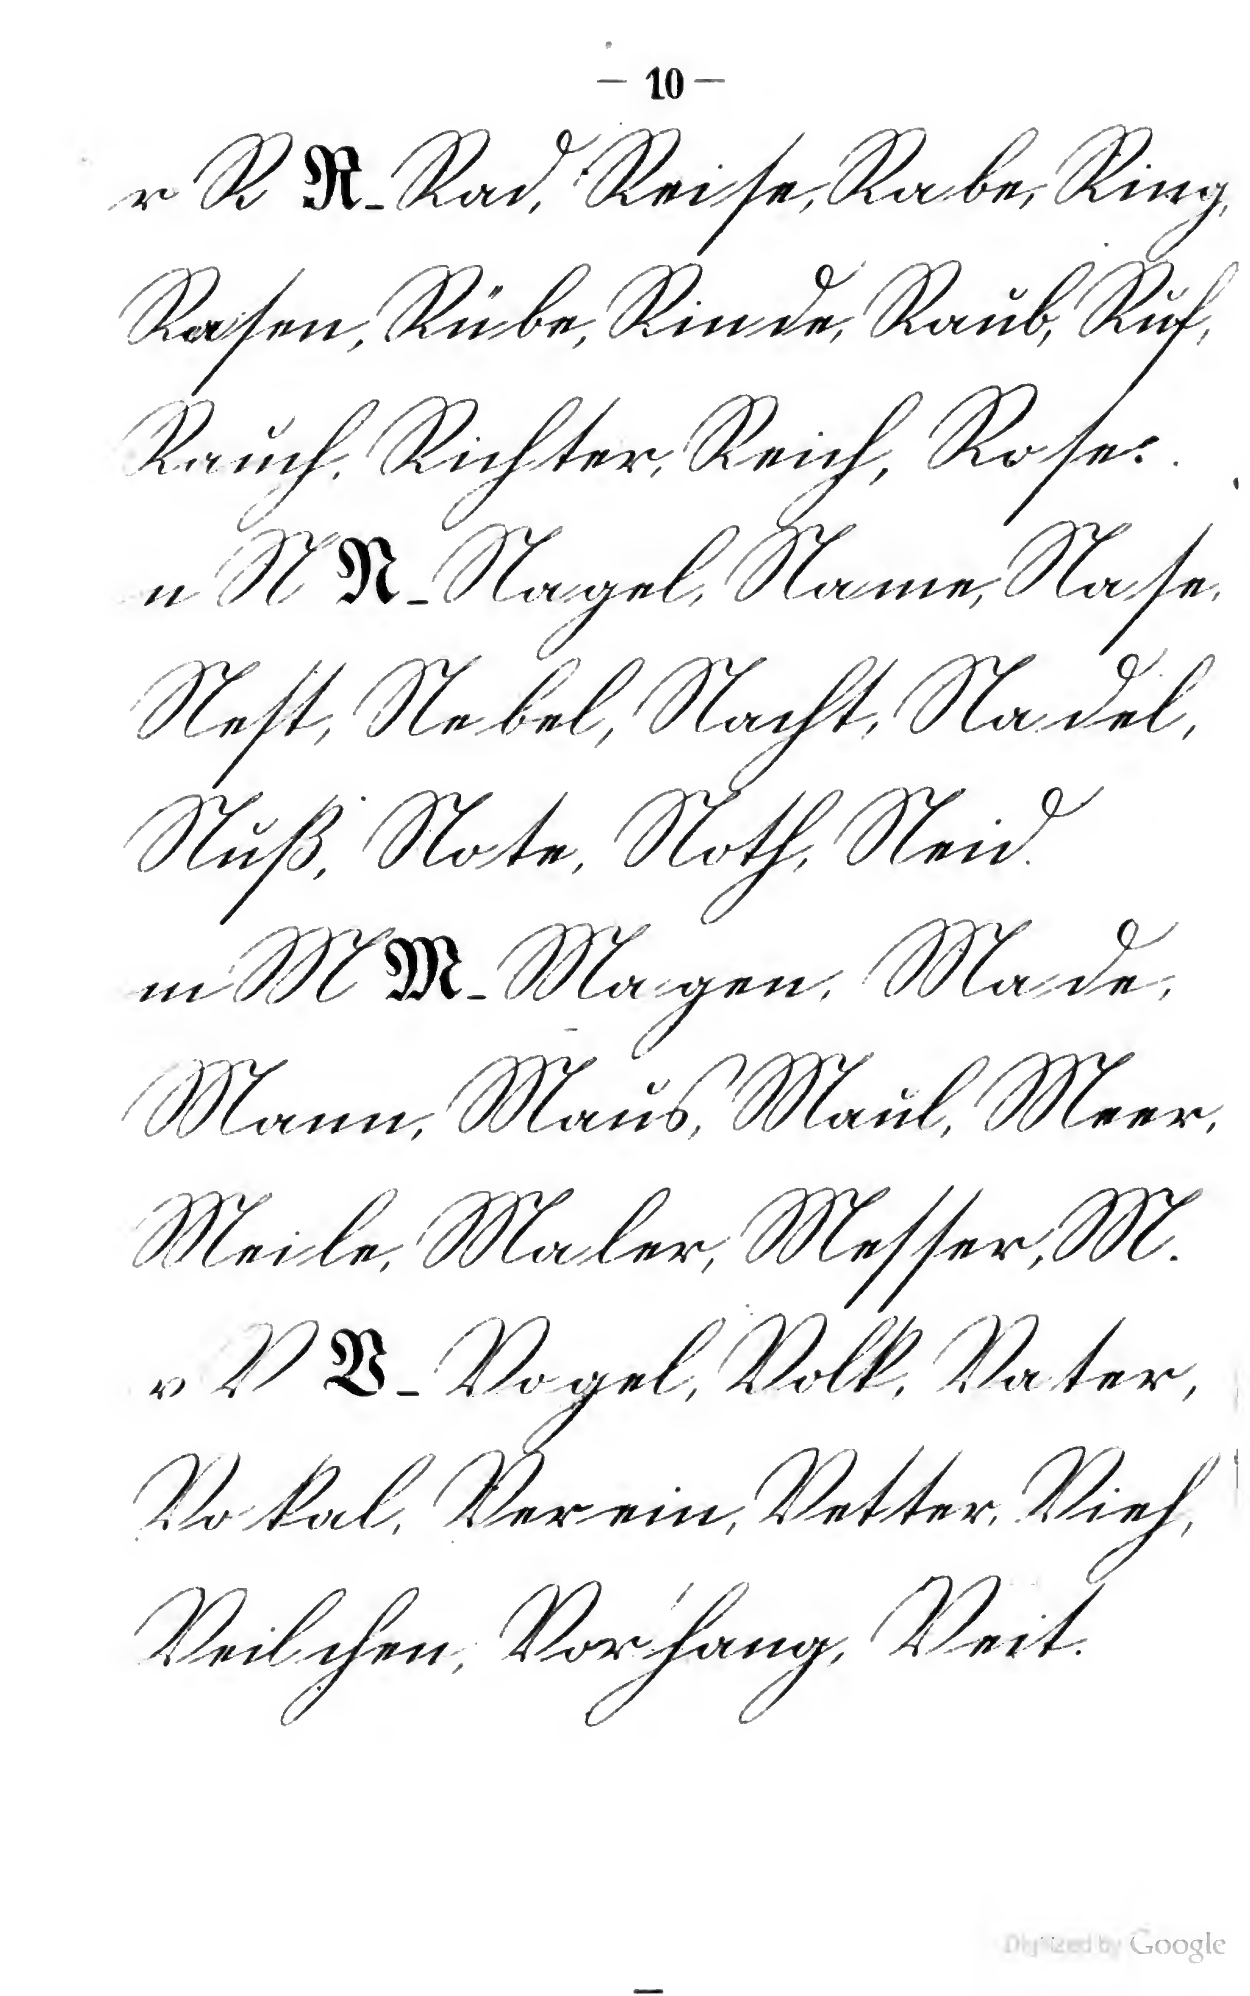 — 10 —
r R R - Rad, Reise, Rabe, Ring,
Rasen, Rübe, Rinde, Raub, Ruf,
Rauch, Richter, Reich, Rose.
n N N - Nagel, Name, Nase,
Nest, Nebel, Nacht, Nadel,
Nuß, Note, Noth, Neid.
m M M - Magen, Made,
Mann, Maus, Maul, Meer,
Meile, Maler, Messer, M.
v V V - Vogel, Volk, Vater,
Vokal, Verein, Vetter, Vieh,
Veilchen, Vorhang, Veit.
Digitized by Google